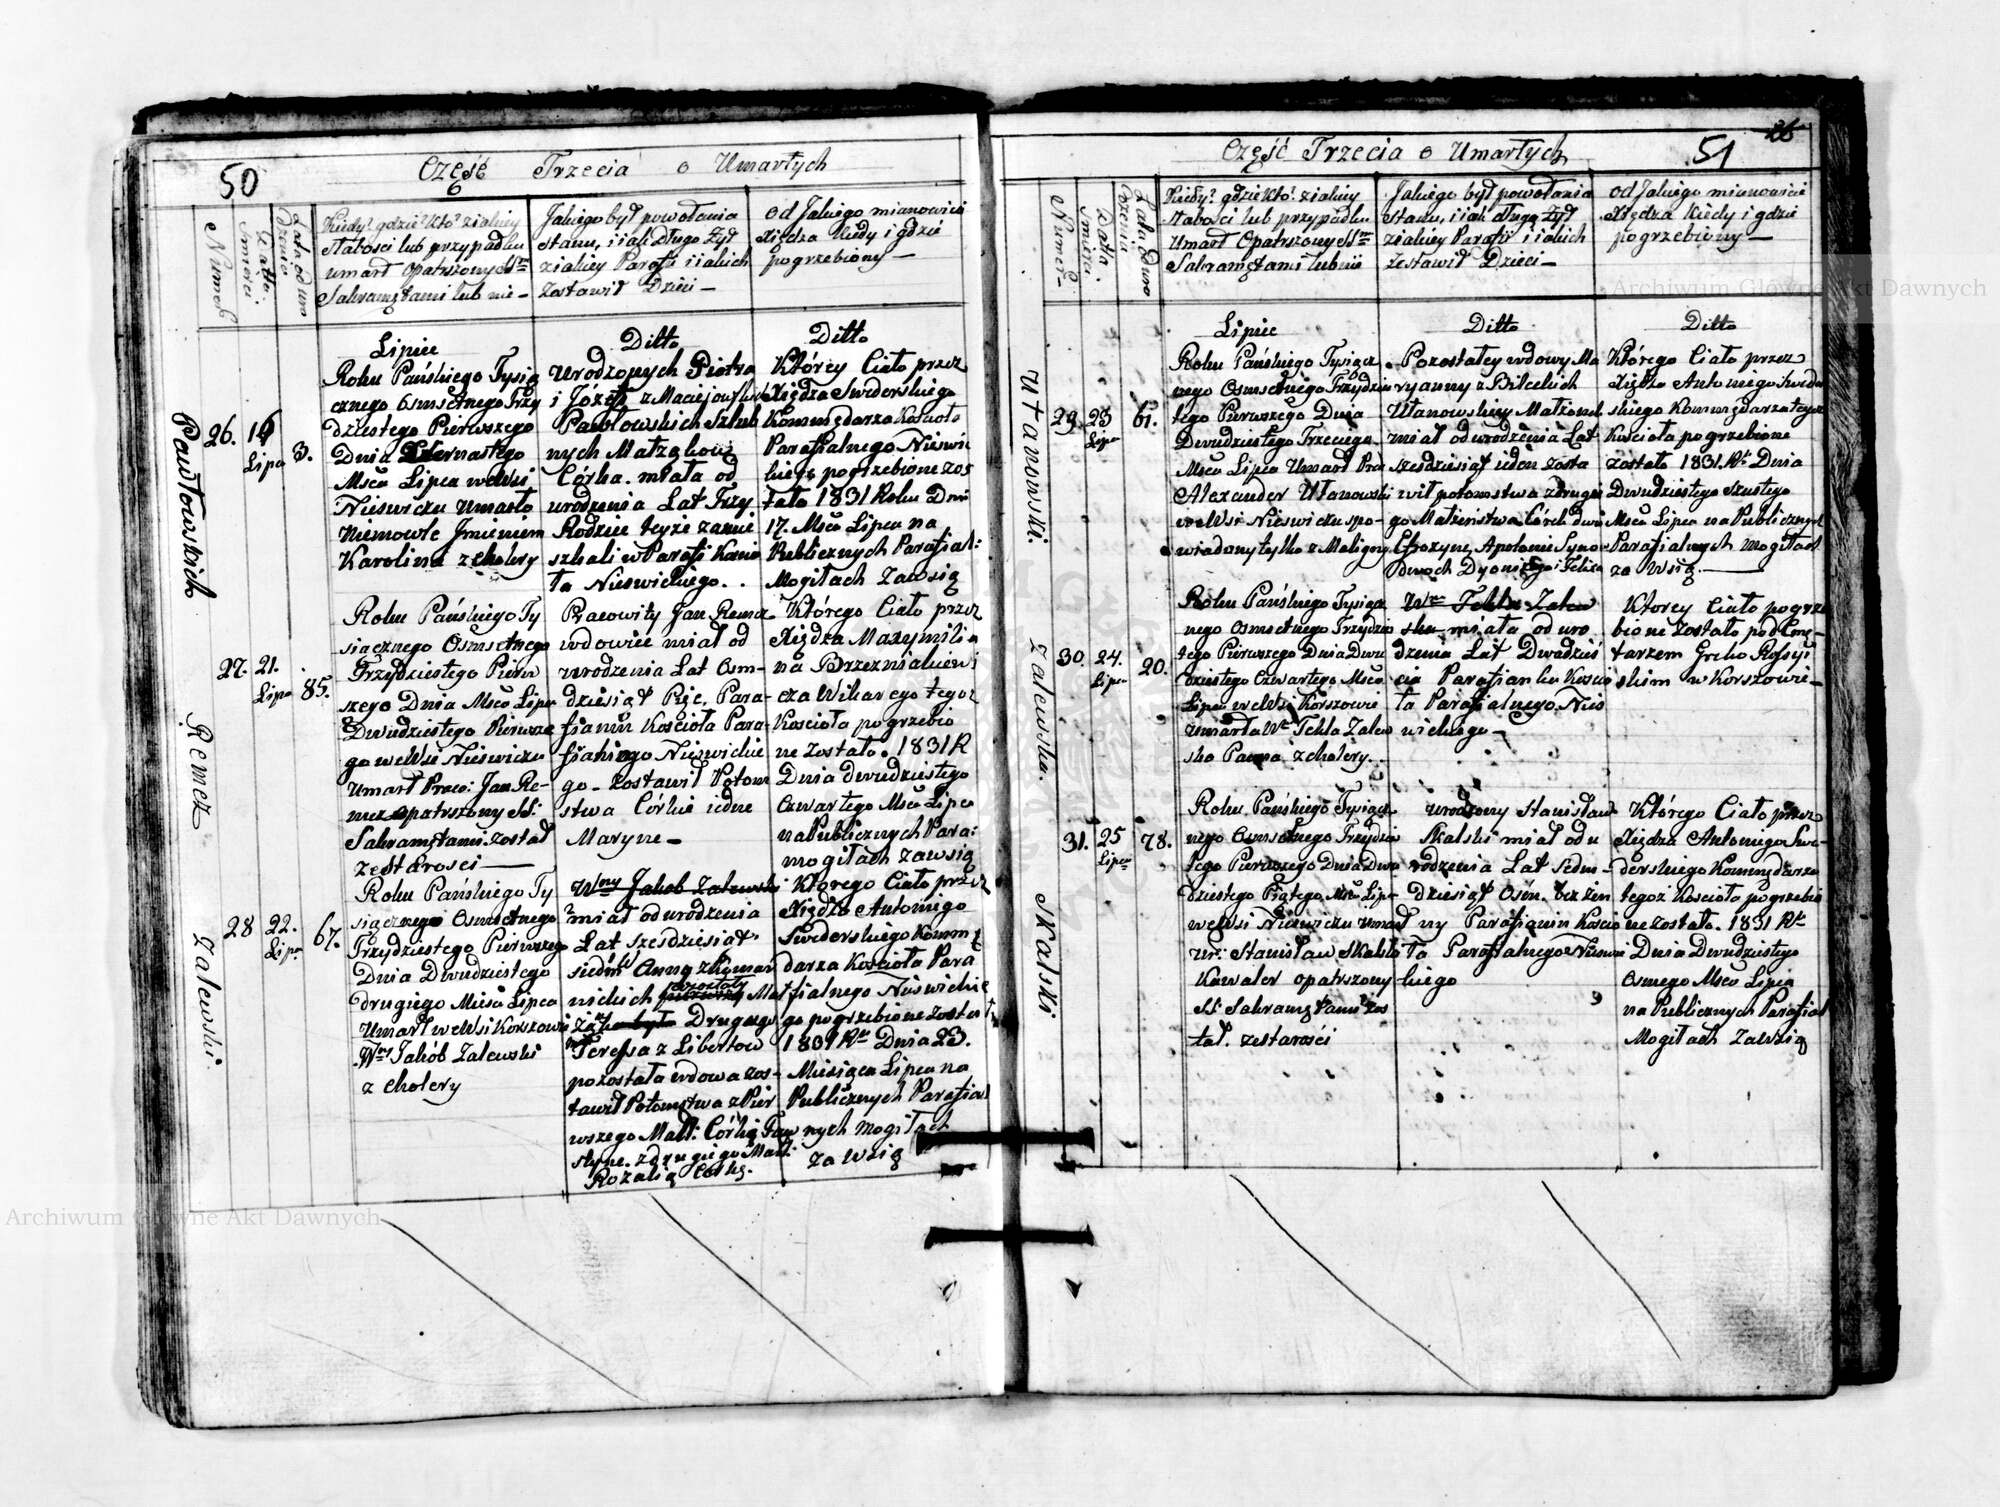 50
Część Trzecia o Umarłych
Numer
Datta Smierci
Lata od uro dzenia
Kiedy? gdzie? Kto? z iakiey
słabości lub przypadku
umarł opatrzony SSmi
Sakramętami lub nie –
Jakiego był powołania
Stanu, i iak Długo Żył
z iakiey Parafii i iakich
Zostawił Dzieci –
od Jakiego mianowicie
Xiędza Kiedy i gdzie
pogrzebiony –
Pawłowskich
26.
16
Lipa
3.
Lipiec
Roku Pańskiego Tysią
cznego Osmsetnego Trzy
dziestego Pierwszego
Dnia
Msca Lipca we Wsi
Nieswiczu Umarło
Niemowle Jmieniem
Karolina z cholery
Ditto
Urodzonych Piotra
i Józefy z Maciejowskich
Pawłowskich Szlub
nych Małżąków
Córka. miała od
urodzenia Lat Trzy
Rodzice teyże zamie
szkali w Parafi Kościo
ła Nieswickiego. .
Ditto
Którey Ciało przez
Xiędza Swiderskiego
Kommędarza Kościoła
Parafialnego Nieswic
kiego pogrzebione zos
tało 1831 Roku Dnia
17. Msca Lipca na
Publicznych Parafial:
Mogiłach Zawsią
Remez
27.
21.
Lipa
85.
Roku Pańskiego Ty
siącznego Osmsetnego
Trzydziestego Pierw
szego Dnia Msca Lipca
Dwudziestego Pierwsze
go we Wsi Nieswiczu
Umarł Praco: Jan Re-
mez opatrszony SS:
Sakramętami został
Ze starosci
Pracowity Jan Remez
wdowiec miał od
urodzenia Lat Osm-
dziesiąt Pięc. Para-
fianin Kościoła Para-
fialnego Nieswickie
go. Zostawił Potom
stwa Córkie iedne
Maryne –
Którego Ciało przez
Xiędza Maxymilia
na Brzezniakiewi
cza Wikarego tegoz
Kościoła pogrzebio
ne zostało. 1831 R
Dnia dwudziestego
Czwartego Msca Lipca
na Publicznych Para:
mogiłach zawsią
Zalewski
28
22.
Lipa
67.
Roku Pańskiego Ty
siącznego Osmsetnego
Trzydziestego Pierwszego
Dnia Dwudziestego
drugiego Miesa Lipca
Umarł we Wsi Korszowie
Wny Jakób Zalewski
z cholery
Wny Jakób Zalewski
miał od urodzenia
Lat szesdziesiąt
siedm Anną z Rymar
nickich
pozostały
Drugiego
Teressa z Libertow
pozostała wdowa zos-
tawił Potomstwa z Pier
wszego Małż: Córkę Faw
styne. z drugiego Małż:
Rozalią Corkę.
Którego Ciało przez
Xiędza Antoniego
Swiderskiego Kommę
darza Kościoła Para
fialnego Nieswickie
go pogrzebione zosta
1831 Rku Dnia 23.
Miesiąca Lipca na
Publicznych Parafial
nych mogiłach
za Wsią
51
26
Część Trzecia o Umarłych
Numer –
Datta Smierci
Lata od uro dzenia
Kiedy? gdzie Kto? z iakiey
słabości lub przypadku
umarł Opatrszony SSmi
Sakramętami lub nie
Jakiego był powołania
Stanu, i iak długo żył
z iakiey Parafii i iakich
Zestawił Dzieci –
od Jakiego mianowicie
Xiędza Kiedy i gdzie
pogrzebiony –
Utanowski.
29.
23
Lipa
61.
Lipiec
Roku Pańskiego Tysiącz
nego Osmsetnego Trzydzies
tego Pierwszego Dnia
Dwudziestego Trzeciego
Msca Lipca Umarł Pra
Alexander Utanowski
we Wsi Nieswiczu spo-
wiadany tylko z Maligny
Ditto
Pozostałey wdowy Ma
ryanny z Bileckich
Utanowskiey Małżonek
miał od urodzenia Lat
szesdziesiąt ieden zosta
wił potomstwa z drugie
go Małżeństwa Córek dwie
Efrozyne, Apolonie Synow
Dwoch Dyonizego i Felixa
Ditto
Którego Ciało przez
Xiędza Antoniego Swider
skiego Kommędarza tegoż
Kościoła pogrzebione
zostało 1831. Rku Dnia
Dwudziestego Szustego
Msca Lipca na Publicznych
Parafialnych mogiłach
za Wsią
Zalewska.
30.
24.
Lipca
20.
Roku Pańskiego Tysiącz
nego Osmsetnego Trzydzies
tego Pierwszego Dnia Dwu
dziestego Czwartego Msca
Lipca we Wsi Korszowie
Umarła Wa Tekla Zalew
ska Panna z cholery.
Wna Tekla Zalew
ska miała od uro
dzenia Lat Dwadzieś
cia Parafianka Kościo
ła Parafialnego Nies
wickiego –
Ktorey Ciało pogrze
bione zostało pod Cmę-
tarzem Greko Rossyi
skim w Korszowie –
Skalski
31.
25
Lipca
78.
Roku Pańskiego Tysiącz
nego Osmsetnego Trzydzies
tego Pierwszego Dnia Dwu
dziestego Piątego Msca Lipca
we Wsi Nieswiczu umarł
Ur: Stanisław Skalski
Kawaler opatrszony
SS Sakramętami zos
tał. ze starości
Urodzony Stanisław
Skalski miał od u
rodzenia Lat Sedm-
dziesiąt Osm. bez żen
ny Parafianin Kościo
ła Parafialnego Nieswi
ckiego
Którego Ciało przez
Xiędza Antoniego Swi-
derskiego Kommędarza
tegoz Kościoła pogrzebio
ne zostało. 1831 Rku
Dnia Dwudziestego
Osmego Msca Lipca
na Publicznych Parafial
Mogiłach Zawsią
Archiwum Główne Akt Dawnych
Archiwum Główne Akt Dawnych